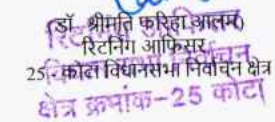 (डॉ. श्रीमति फरिहा आलम)
रिटर्निंग आफिसर
25,- कोटा विधानसभा निर्वाचन क्षेत्र
क्षेत्र क्रमांक-25 कोटा